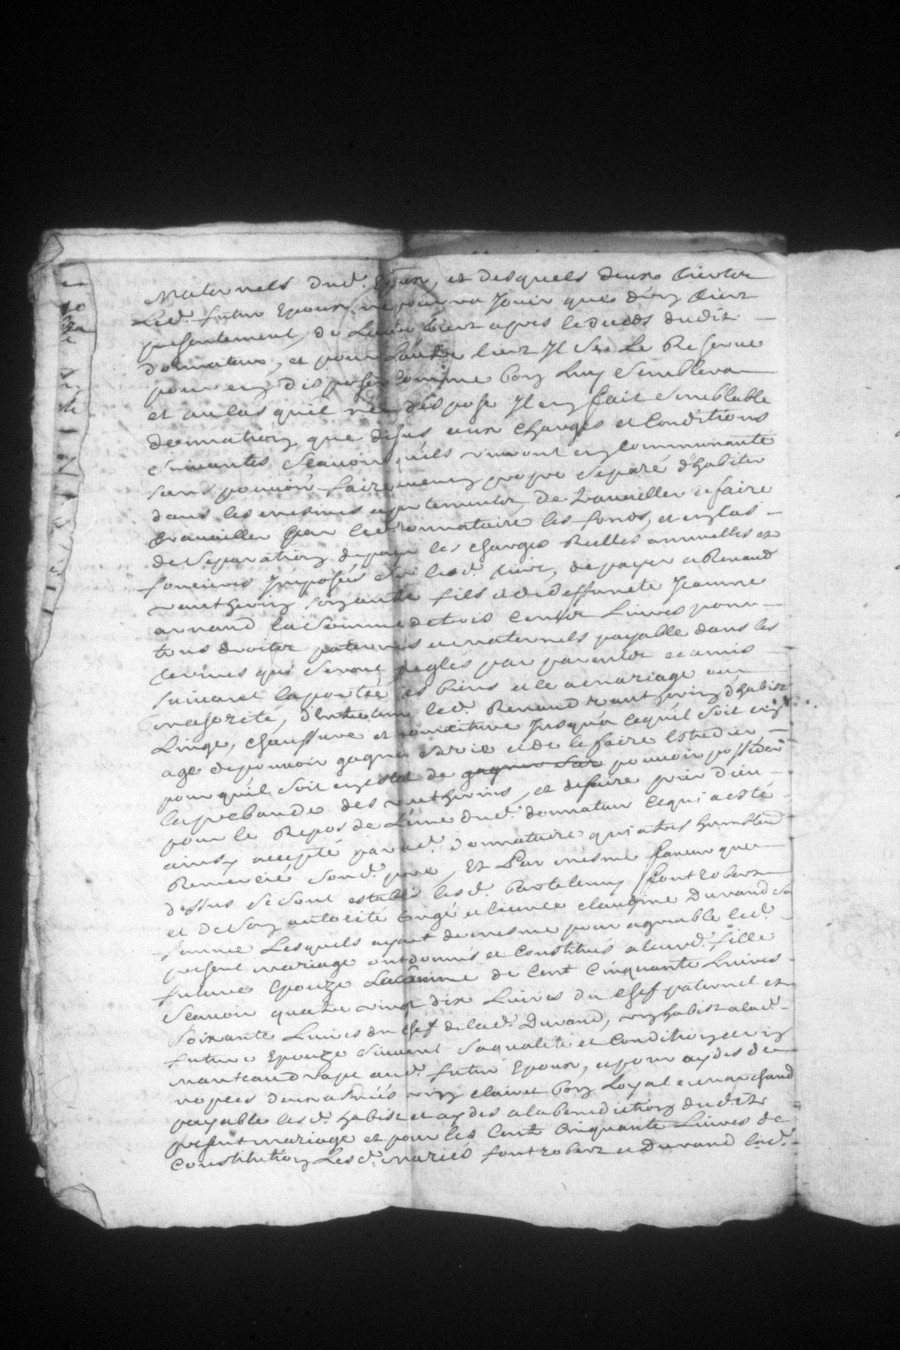 Maternels dud. Epoux, et desquels deux tiertz
Led. futur Epoux ne pourra Jouir que d'un tiert
presentement, de Lautre tiert apres le deces dudit
donnateur, et pour Lautre tiert Il se Le Reserve
pour en disposer comme bon Luy semblera
et au cas quil n'en dispose Il en fait semblable
donnation que dessus aux charges et Conditions
suivantes scavoir quils vivront en communauté
sans pouvoir faire propre separé d'habiter
dans les mesmes appartements de travailler et faire
travailler par led. donnataire les fonds, et en cas
de separation de payer les charges Reelles annuelles et
foncieres Imposés sur lesd. biens, de payer a Renaud
fils a deffuncte Jeanne
arnaud la somme de trois cents Livres pour
tous droits paternels et maternels payable dans les
termes qui seront Reglés par parents et amis
suivant la portée des biens et le a mariage ou
majorité, d'Entretenir led. Renaud d'habist
Linge, chaussure et nourriture Jusqua cequil soit en
age de pouvoir gagner sa vie et de le faire Estudier
pour quil soit en estat de gagner sa pouvoir posseder
la prebande des et de faire prier dieu
pour le Repos de L'ame dud. donnateur cequi a esté
ainsy accepté par led. donnataire qui a tres humblement
Remercié sond. pere, Et Par mesme faveur que
dessus se sont establis lesd. Bartelemy fontrobert
et de son autorité congé et licence claudine Durand sa
femme Lesquels ayant de mesme pour agreable led.
present mariage ont donnés et constitués a leurd. fille
future Epouze La somme de Cent Cinquante Livres
scavoir quatre vingt dix Livres du chef paternel et
soixante Livres du chef de lad. Durand, un habist a lad.
future Epouze suivant sa qualité et condition et un
manteau drapt aud. futur Epoux, et pour aydes de
nopces deux asnées vin clairet bon Loyal et marchand
payable lesd. habist et aydes a la benediction dudit
present mariage et pour les Cent Cinquante Livres de
constitution Lesd. mariés fontrobert et Durand lad.